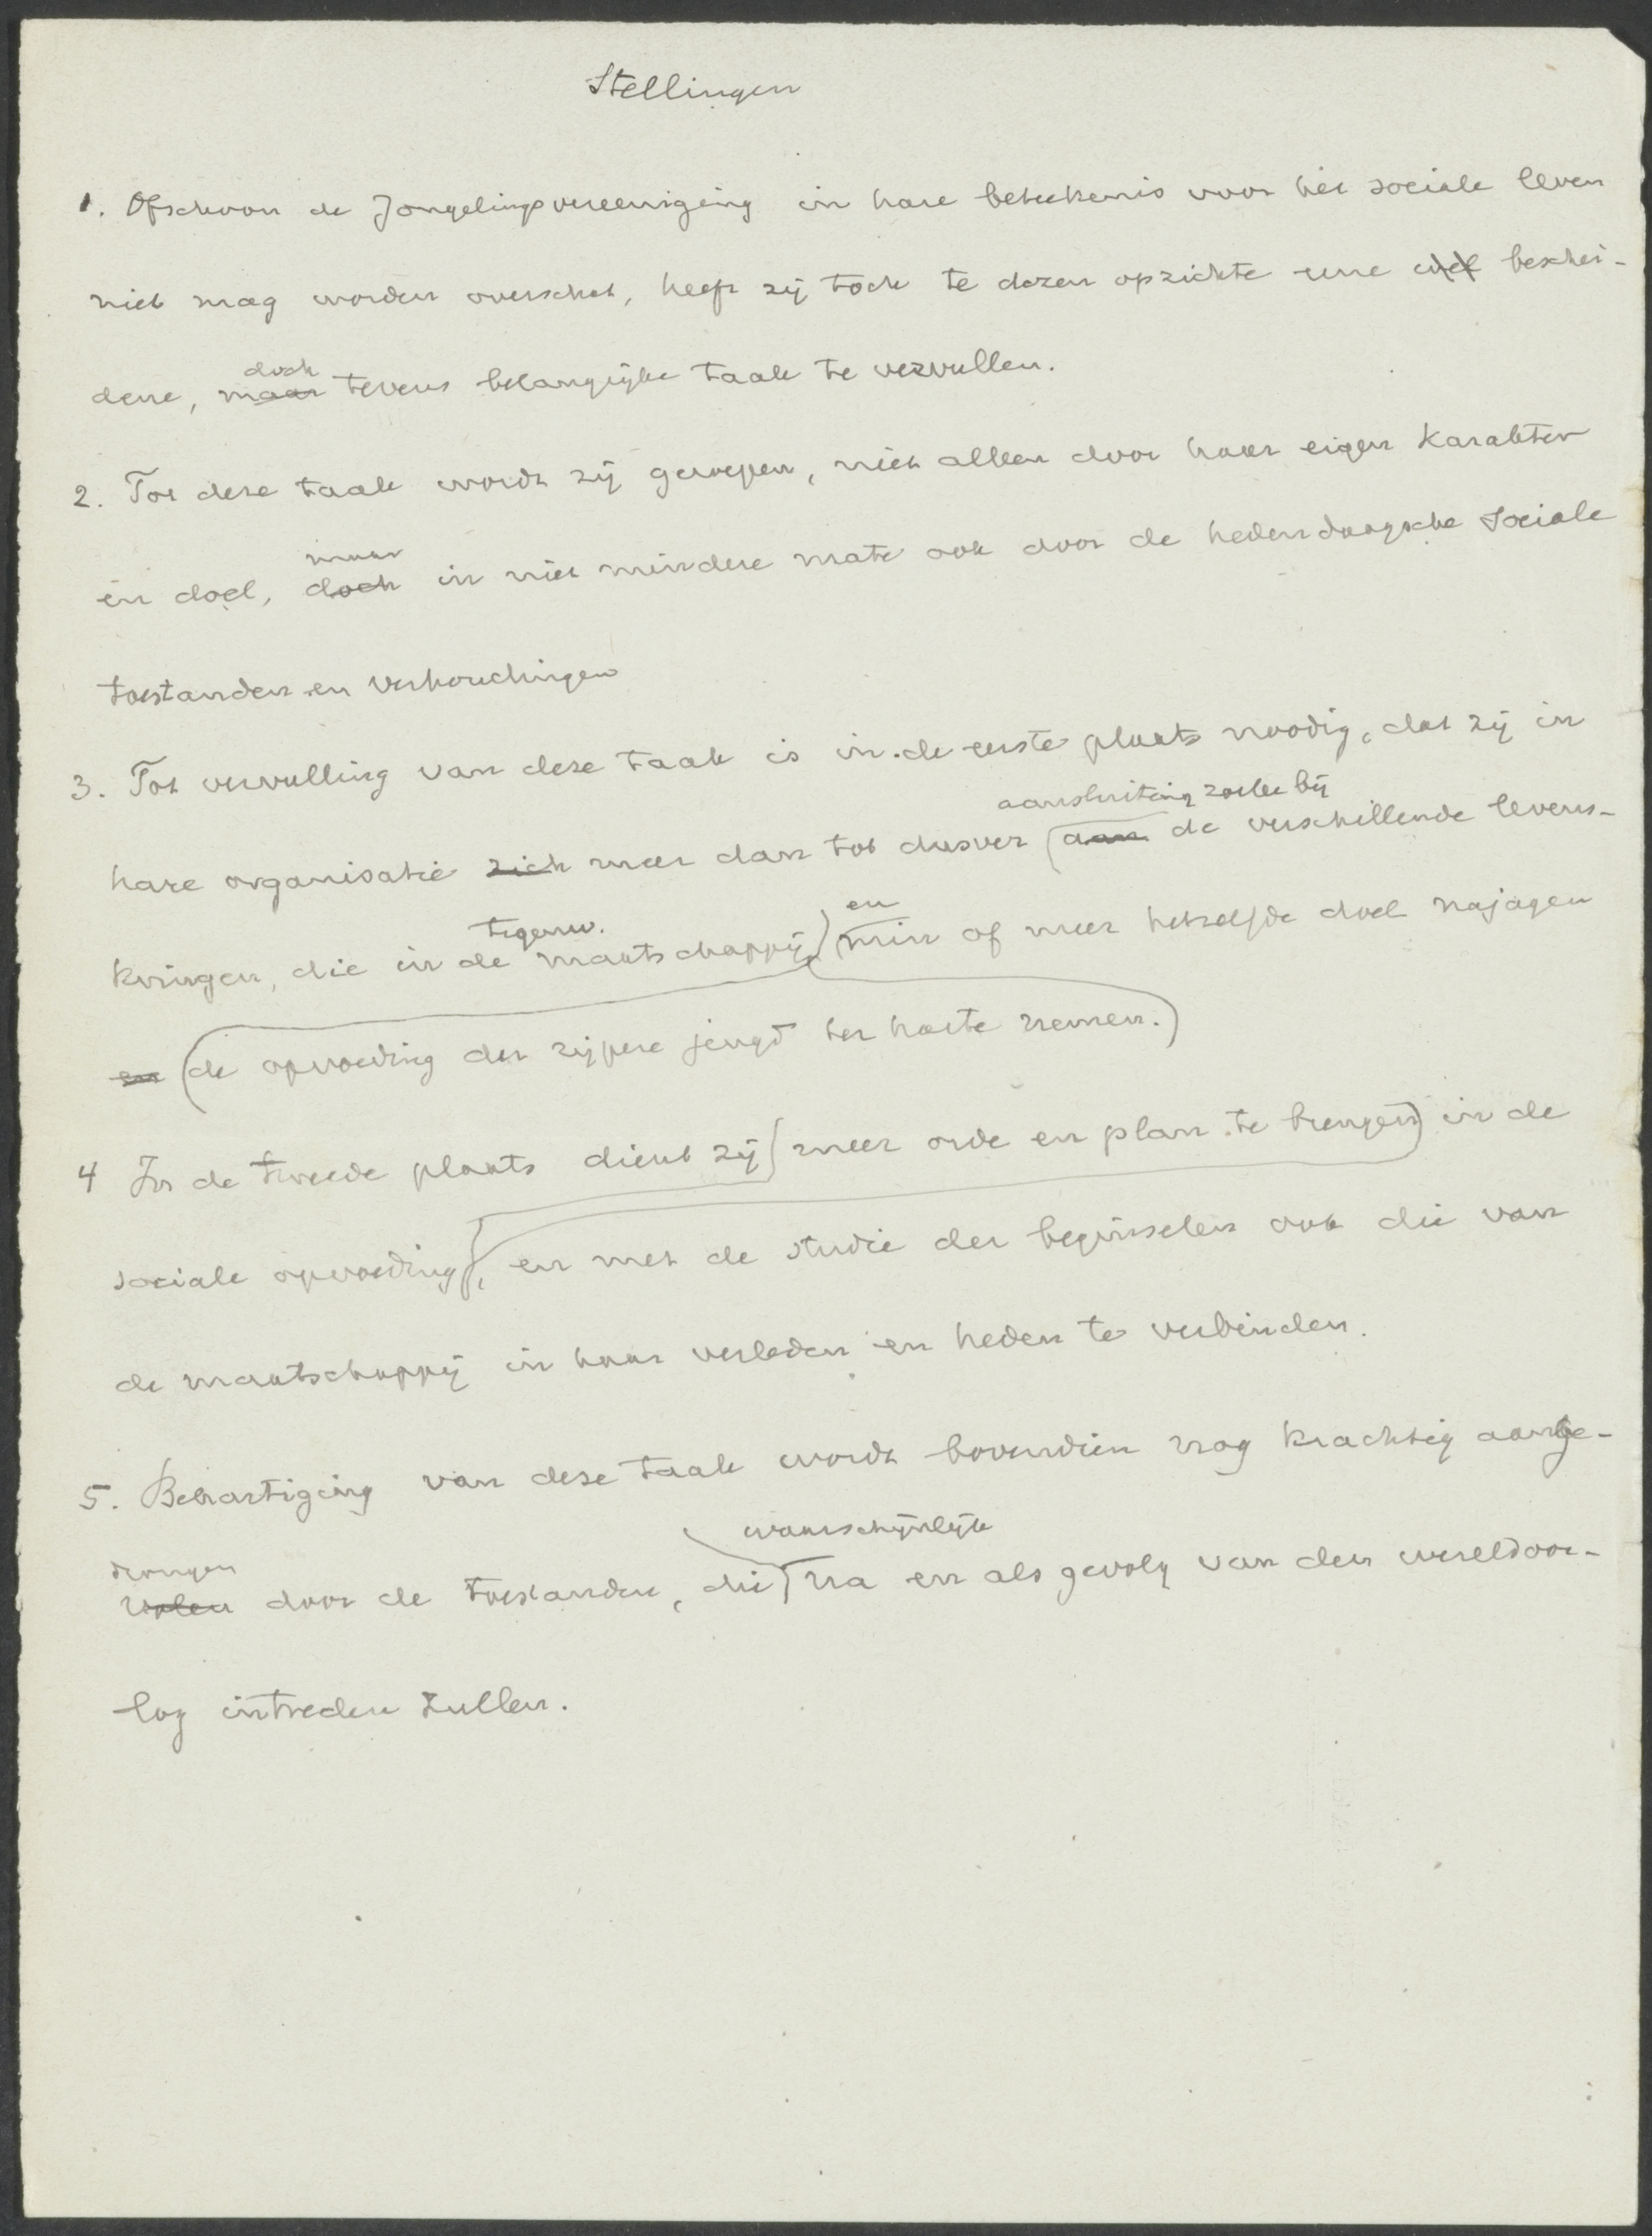 Stellingen
1. Ofschoon de Jongelingsvereeniging in hare beteekenis voor het sociale leven
niet mag worden overschat, heeft zij toch te dezen opzichte eene wel beschei-
doch
dene, maar tevens belangrijke taak te vervullen.
2. Tot deze taak wordt zij geroepen, niet alleen door haar eigen karakter
maar
en doel, doch in niet mindere mate ook door de hedendaagsche sociale
toestanden en verhoudingen
3. Tot vervulling van deze taak is in de eerste plaats noodig, dat zij in
aansluiting zoeke bij
hare organisatie zich meer dan tot dusver aan de verschillende levens-
tegenw. en
kringen, die in de maatschappij min of meer hetzelfde doel najagen
en (de opvoeding der rijpere jeugd ter harte nemen.)
4 In de tweede plaats dient zij (meer orde en plan te brengen) in de
sociale opvoeding, en met de studie der beginselen ook die van
de maatschappij in haar verleden en heden te verbinden.
5. Behartiging van deze taak wordt bovendien nog krachtig aange-
waarschijnlijk
drongen
door de toestanden, die na en als gevolg van den wereldoor-
log intreden zullen.